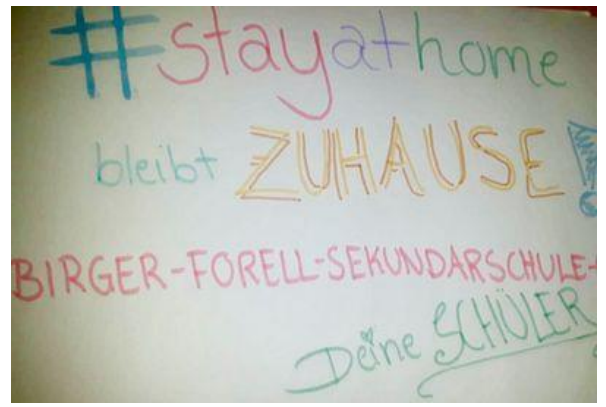 #stayathome
bleibt ZUHAUSE!
BIRGER-FORELL-SEKUNDARSCHULE-
Deine SCHÜLER